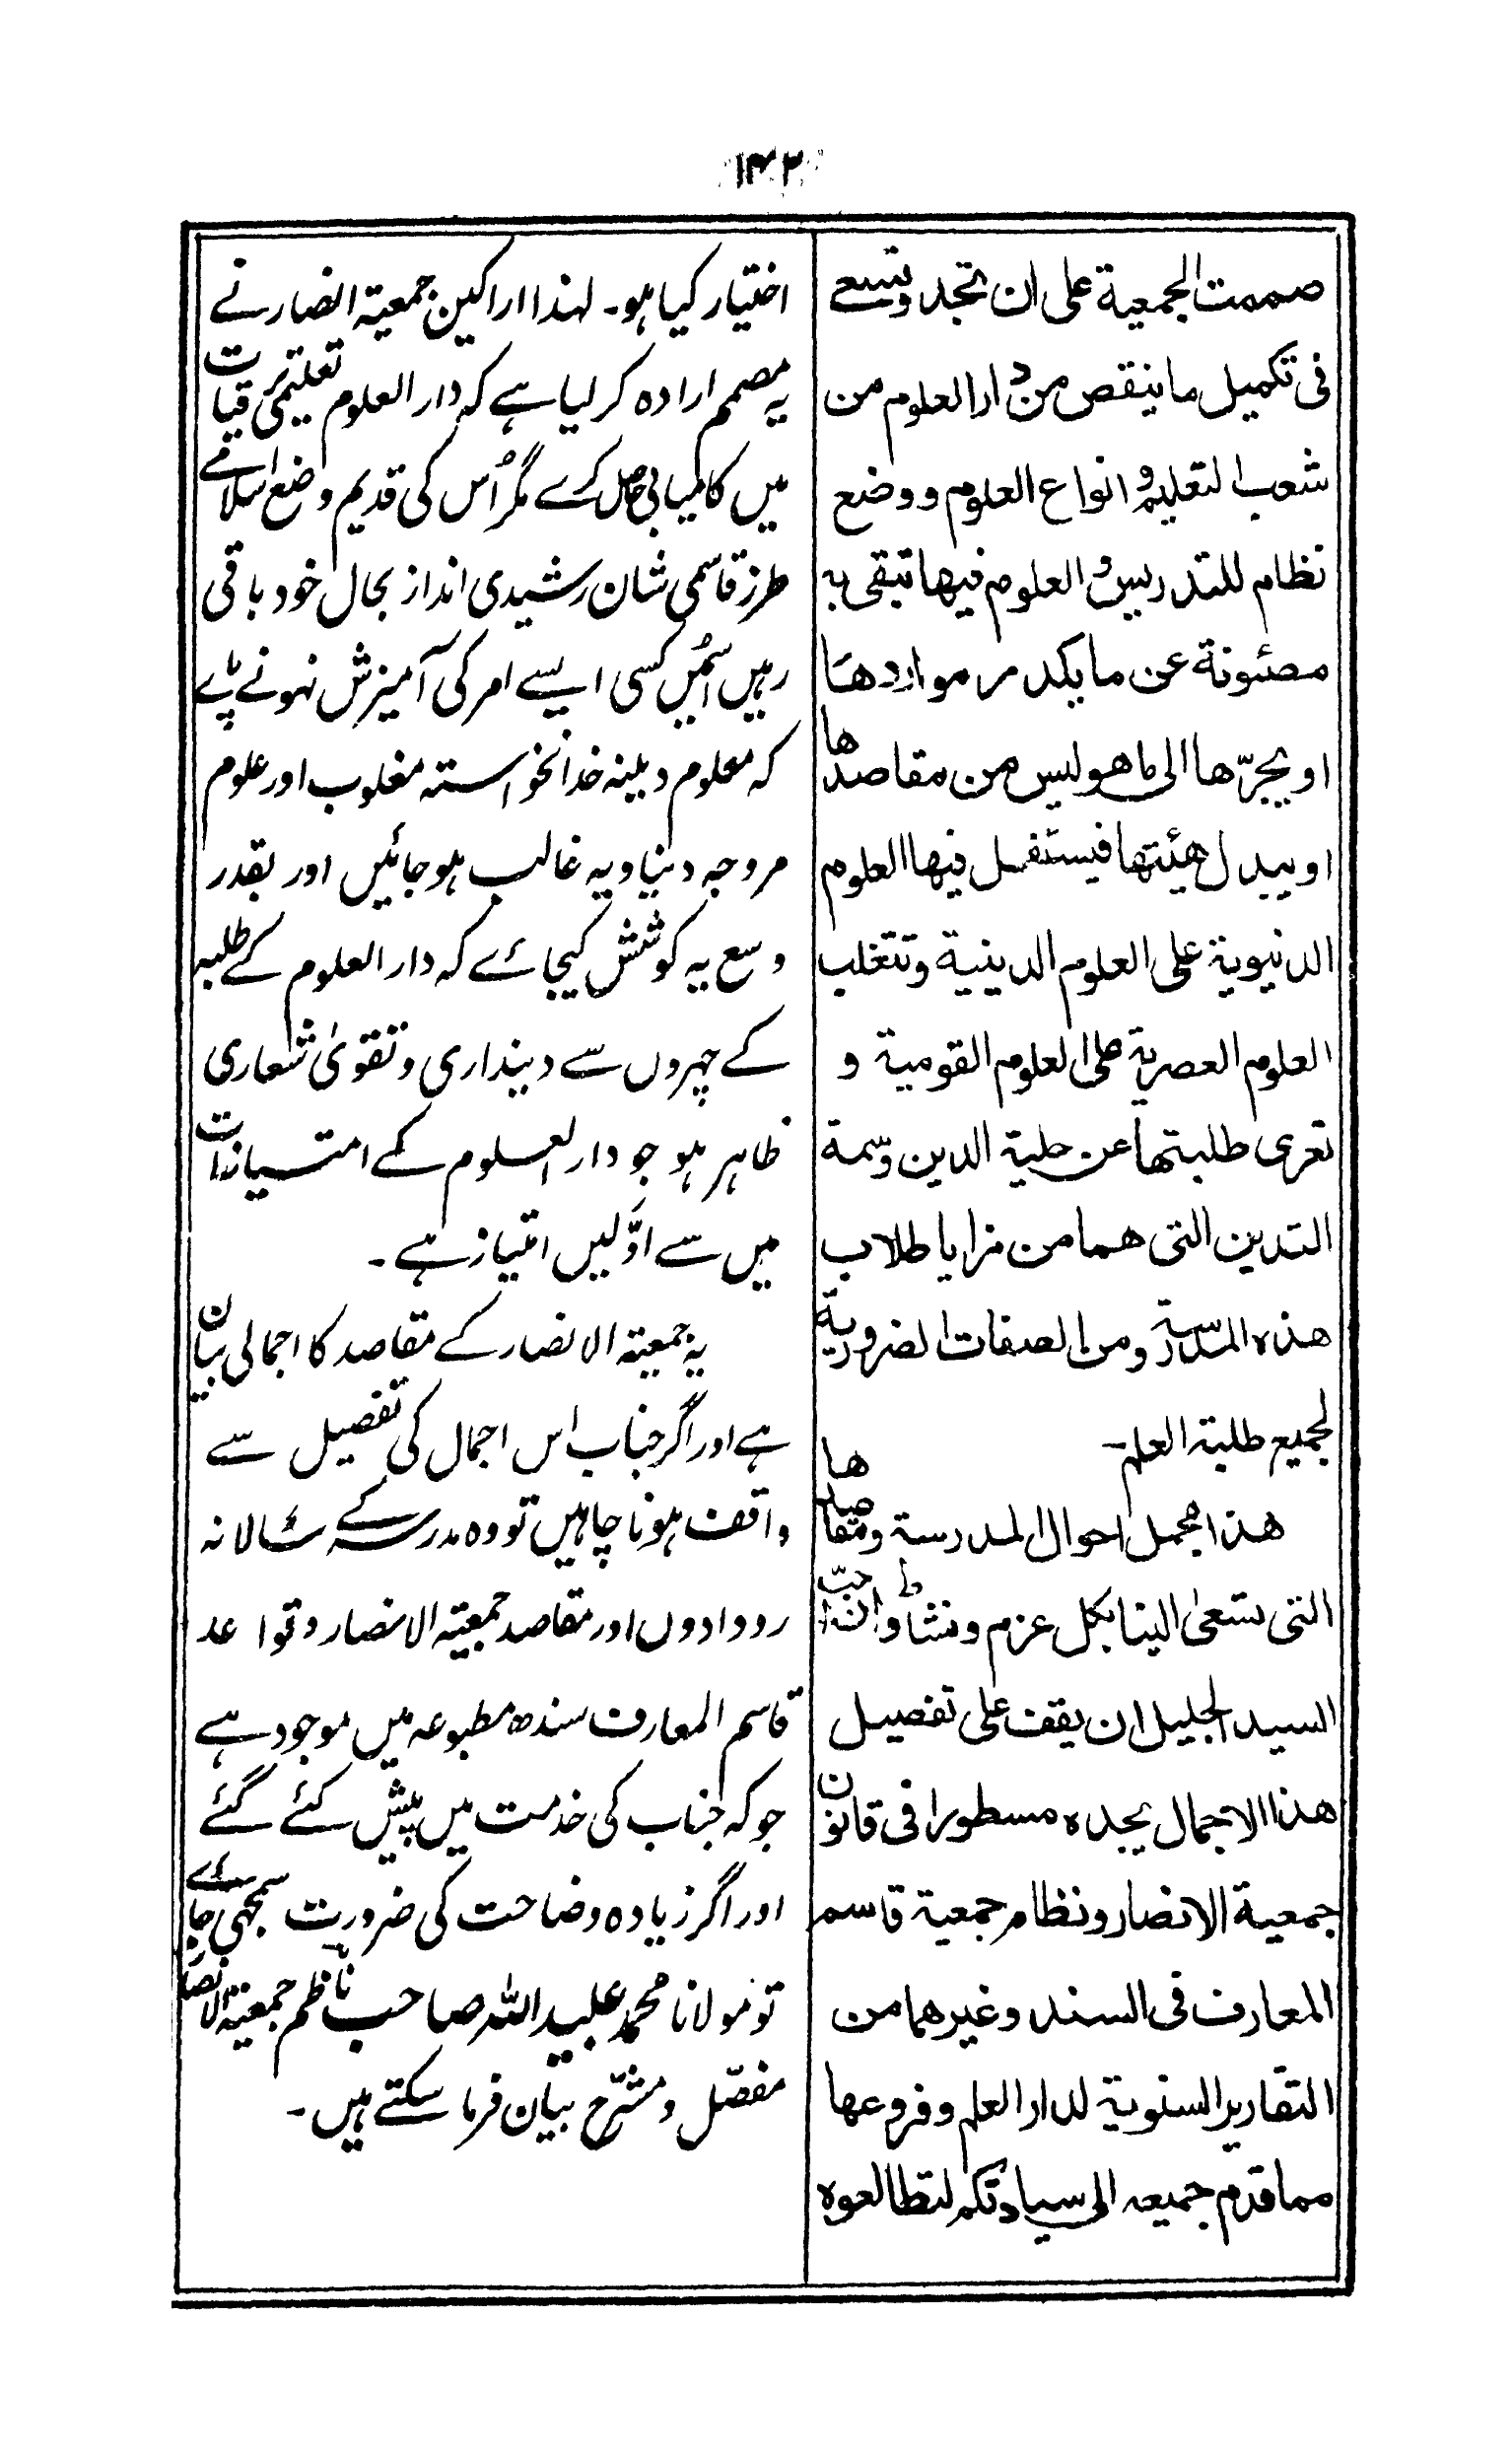 ۱۴۲
صممت الجمعية على ان تجد وتسعے
فى تكميل ما ينقص من دار العلوم من
شعب التعليم و انواع العلوم ووضع
نظام للتدريس العلوم فيها تبقى به
مصئونة عن ما يكدر مواردها
او يجرّها الى ما هو ليس من مقاصدها
او يبدل هيئتها فيستفل فيها العلوم
الدنيوية على العلوم الدينية وتتغلب
العلوم العصرية على العلوم القومية و
تعرى طلبتها عن حلية الدين وسمة
التدين التى هما من مزايا طلاب
هذه المدرسة ومن الصفات الضرورية
لجميع طلبة العلم۔
هذا مجمل احوال المدرسة ومقاصدها
التى تسعىٰ الينا بكل عزم ونشاط وان احبّ
السيد الجليل ان يقف على تفصيل
هذا الاجمال يجده مسطورا فى قانون
جمعية الانصار ونظام جمعية قاسم
المعارف فى السند وغيرهما من
التقارير السنوية لدار العلم وفروعها
مما قدم جميعه الى سيادتكم لتطالعوه
اختیار کیا ہو۔ لہذا اراکین جمعیۃ انصار نے
یہ مصمم ارادہ کر لیا ہے کہ دار العلوم تعلیمی ترقیات
میں کامیابی حاصل کرے مگر اُس کی قدیم وضع اسلامے
طرز قاسمی شان رشیدی انداز بحال خود باقی
رہیں اسمیں کسی ایسے امر کی آمیزش نہونے پائے
کہ معلوم دینیہ خدانخواستہ مغلوب اور علوم
مروجہ دنیاویہ غالب ہو جائیں اور بقدر
وسع یہ کوشش کیجائے کہ دار العلوم کے طلبہ
کے چہروں سے دینداری و تقویٰ شعاری
ظاہر ہو جو دار العلوم کے امتیازات
میں سے اوّلیں امتیاز ہے۔
یہ جمعیۃ الانصار کے مقاصد کا اجمالی بیان
ہے اور اگر جناب اس اجمال کی تفصیل سے
واقف ہونا چاہیں تو وہ مدرسہ کے سالانہ
روودادوں اور مقاصد جمعیۃ الانصار و قواعد
قاسم المعارف سندھ مطبوعہ میں موجود ہے
جو کہ جناب کی خدمت میں پیش کئے گئے
اور اگر زیادہ وضاحت کی ضرورت سمجھی جائے
تو مولانا محمد عبید اللہ صاحب ناظم جمعیۃ الانصار
مفصّل و مشرّح بیان فرما سکتے ہیں۔